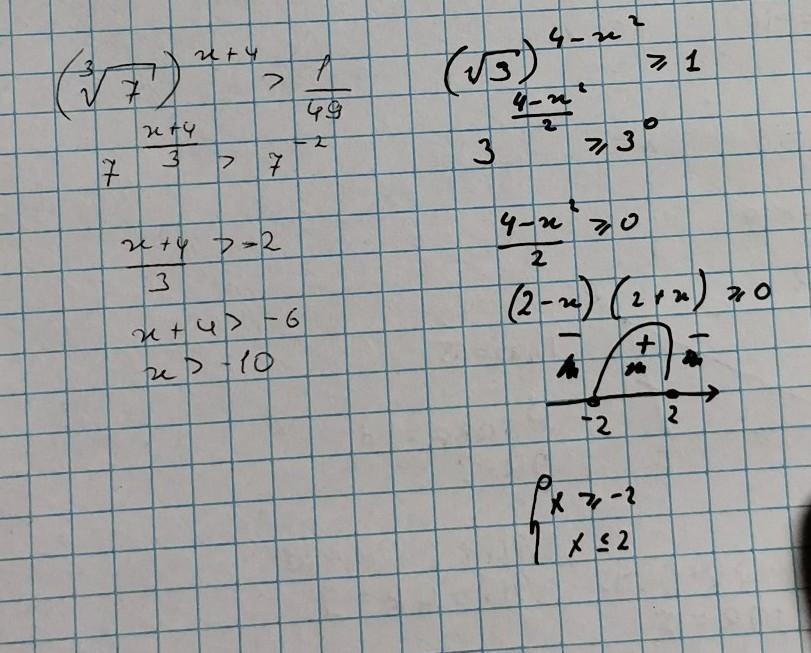 (∛7)^(x+4) > 1/49
7^((x+4)/3) > 7^(-2)
(x+4)/3 > -2
x + 4 > -6
x > -10
(√3)^(4-x²) ≥ 1
3^((4-x²)/2) ≥ 3^0
(4-x²)/2 ≥ 0
(2-x) (2+x) ≥ 0
- + -
-2 2
{ x ≥ -2
x ≤ 2